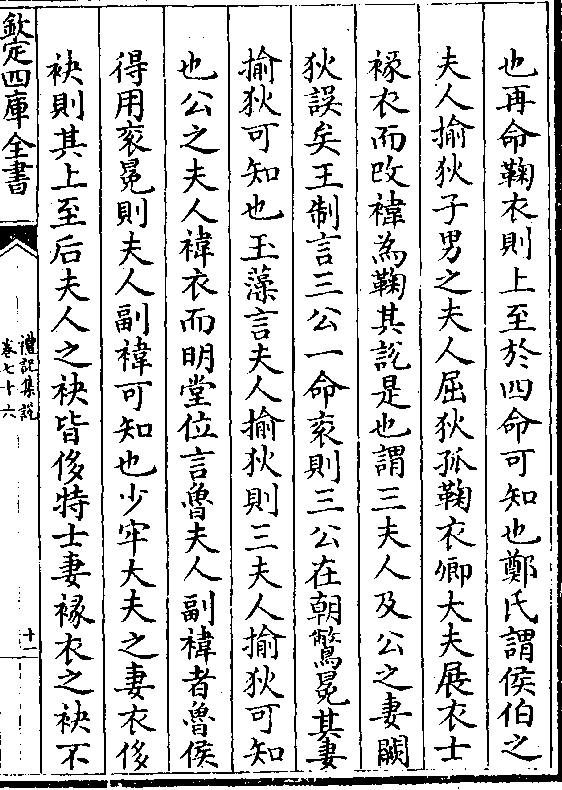 也再命鞠衣則上至於四命可知也鄭氏謂侯伯之
夫人揄狄子男之夫人屈狄孤鞠衣卿大夫展衣士
褖衣而改褘為鞠其說是也謂三夫人及公之妻闕
狄誤矣王制言三公一命衮則三公在朝鷩冕其妻
揄狄可知也玉藻言夫人揄狄則三夫人揄狄可知
也公之夫人褘衣而明堂位言魯夫人副褘者魯侯
得用衮冕則夫人副褘可知也少牢大夫之妻衣侈
袂則其上至后夫人之袂皆侈特士妻褖衣之袂不
欽定四庫全書
禮記集說
卷七十六
十一